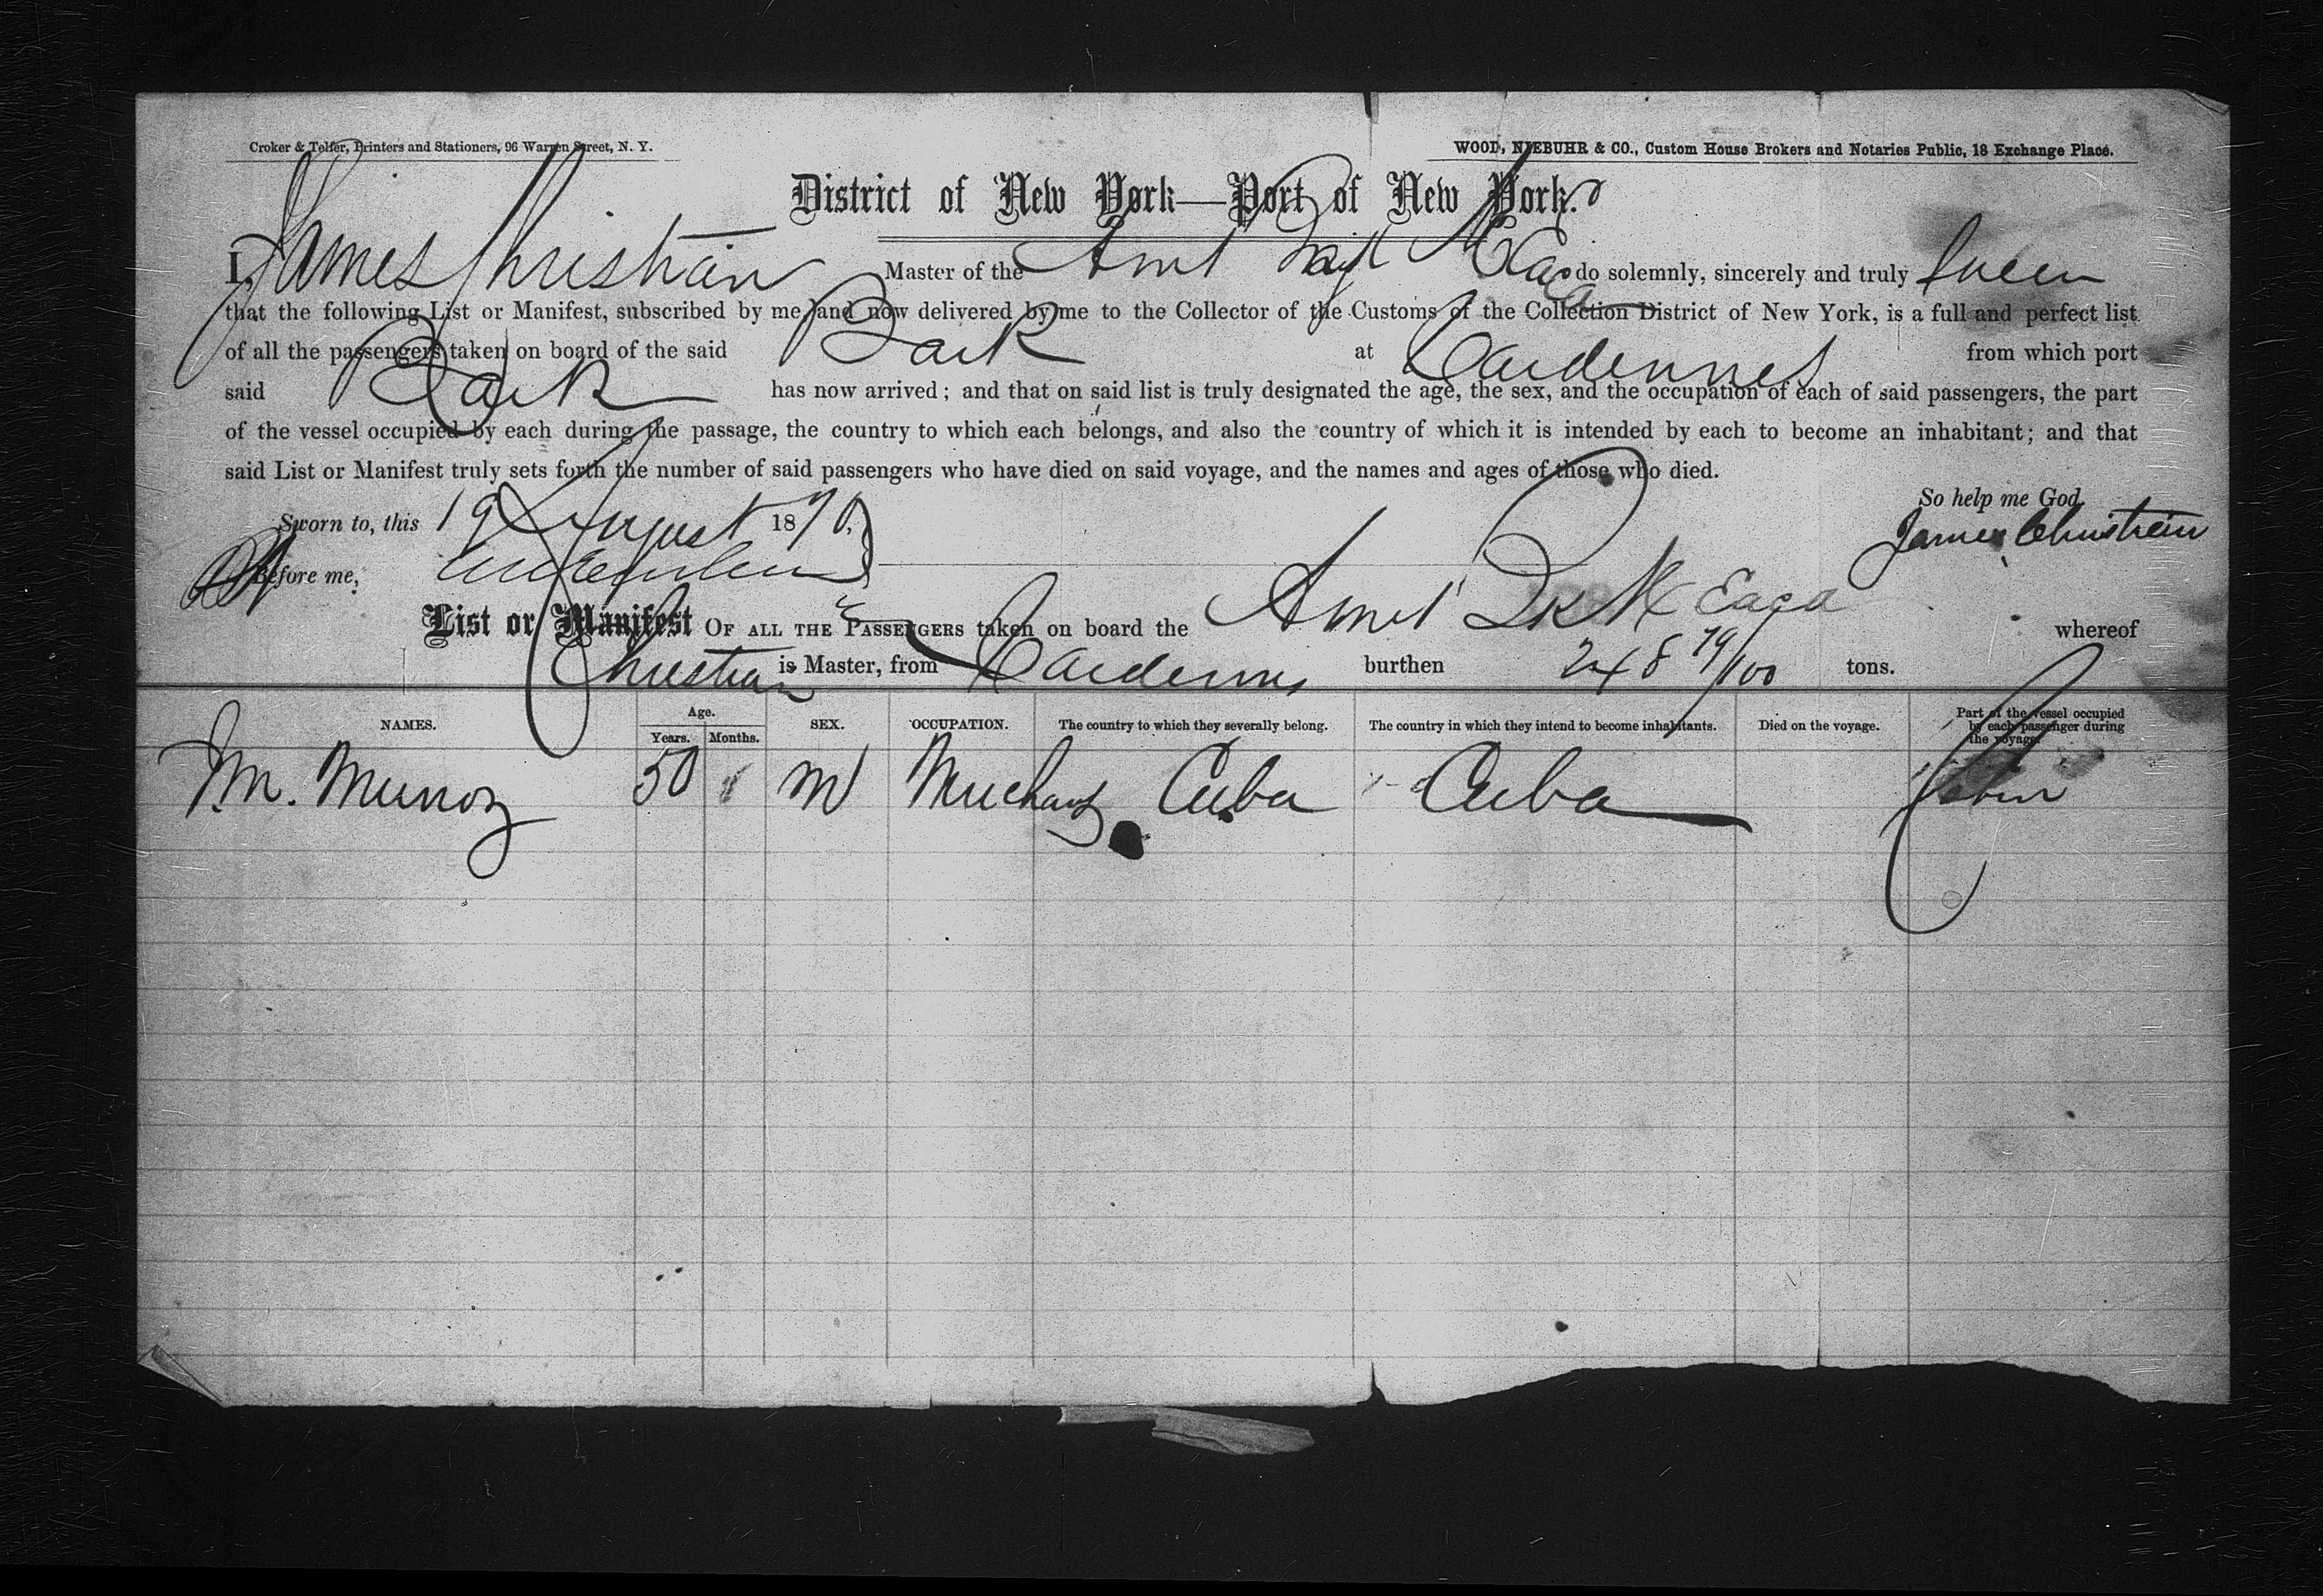 Croker & Telfer, Printers and Stationers, 96 Warren Street, N. Y.
WOOD, NIEBUHR & CO., Custom House Brokers and Notaries Public, 18 Exchange Place.
District of New York—Port of New York.
I, James Christian Master of the Amt do solemnly, sincerely and truly swear
that the following List or Manifest, subscribed by me, and now delivered by me to the Collector of the Customs of the Collection District of New York, is a full and perfect list
of all the passengers taken on board of the said Bark at Cardennes from which port
said Bark has now arrived; and that on said list is truly designated the age, the sex, and the occupation of each of said passengers, the part
of the vessel occupied by each during the passage, the country to which each belongs, and also the country of which it is intended by each to become an inhabitant; and that
said List or Manifest truly sets forth the number of said passengers who have died on said voyage, and the names and ages of those who died.
So help me God,
Sworn to, this 19 August 1870. James Christian
Before me,
List or Manifest OF ALL THE PASSENGERS taken on board the Amt Bk Eaga whereof
Christian is Master, from Cardennes burthen 248 79/100 tons.
NAMES. Age. Years. Months. SEX. OCCUPATION. The country to which they severally belong. The country in which they intend to become inhabitants. Died on the voyage. Part of the vessel occupied by each passenger during the voyage.
M. Munoz 50 M Merchant Cuba Cuba Cabin